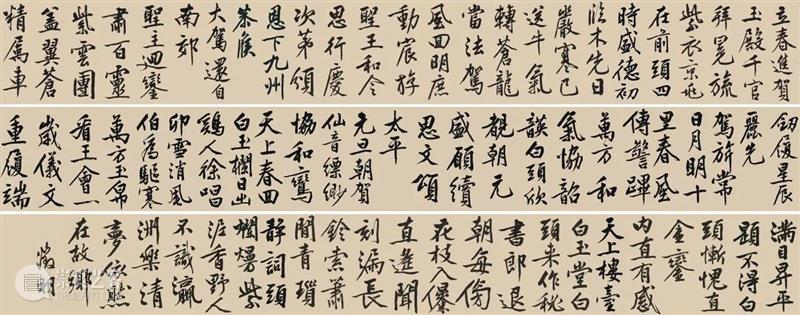 立春進賀
玉殿千官
拜冕旒
紫衣京兆
在前頭四
時盛德初
臨木先日
嚴寒已
送牛氣
轉蒼龍
當法駕
風回明庶
動宸游
聖王和令
思行慶
次第頒
恩下九州
恭候
大駕還自
南郊
聖主迴鑾
肅百靈
紫雲團
蓋翼蒼
精屬車
劒履星辰
麗先
駕旂常
日月明十
里春風
傳警蹕
萬方和
氣協韶
頀白頭欣
覩朝元
盛願續
思文頌
太平
元旦朝賀
仙音縹緲
協和鸞
天上春回
白玉欄日出
鷄人徐唱
卯雪消風
伯為驅寒
萬方玉帛
看王會一
歲儀文
重履端
滿目昇平
題不得白
頭慚愧直
金鑾
內直有感
天上樓臺
白玉堂白
頭來作秘
書郎退
朝每傍
花枝入儤
直遙聞
刻漏長
鈴索蕭
閒青瑣
靜詞頭
爛熳紫
泥香野人
不識瀛
洲樂清
夢依然
在故鄉
徵明